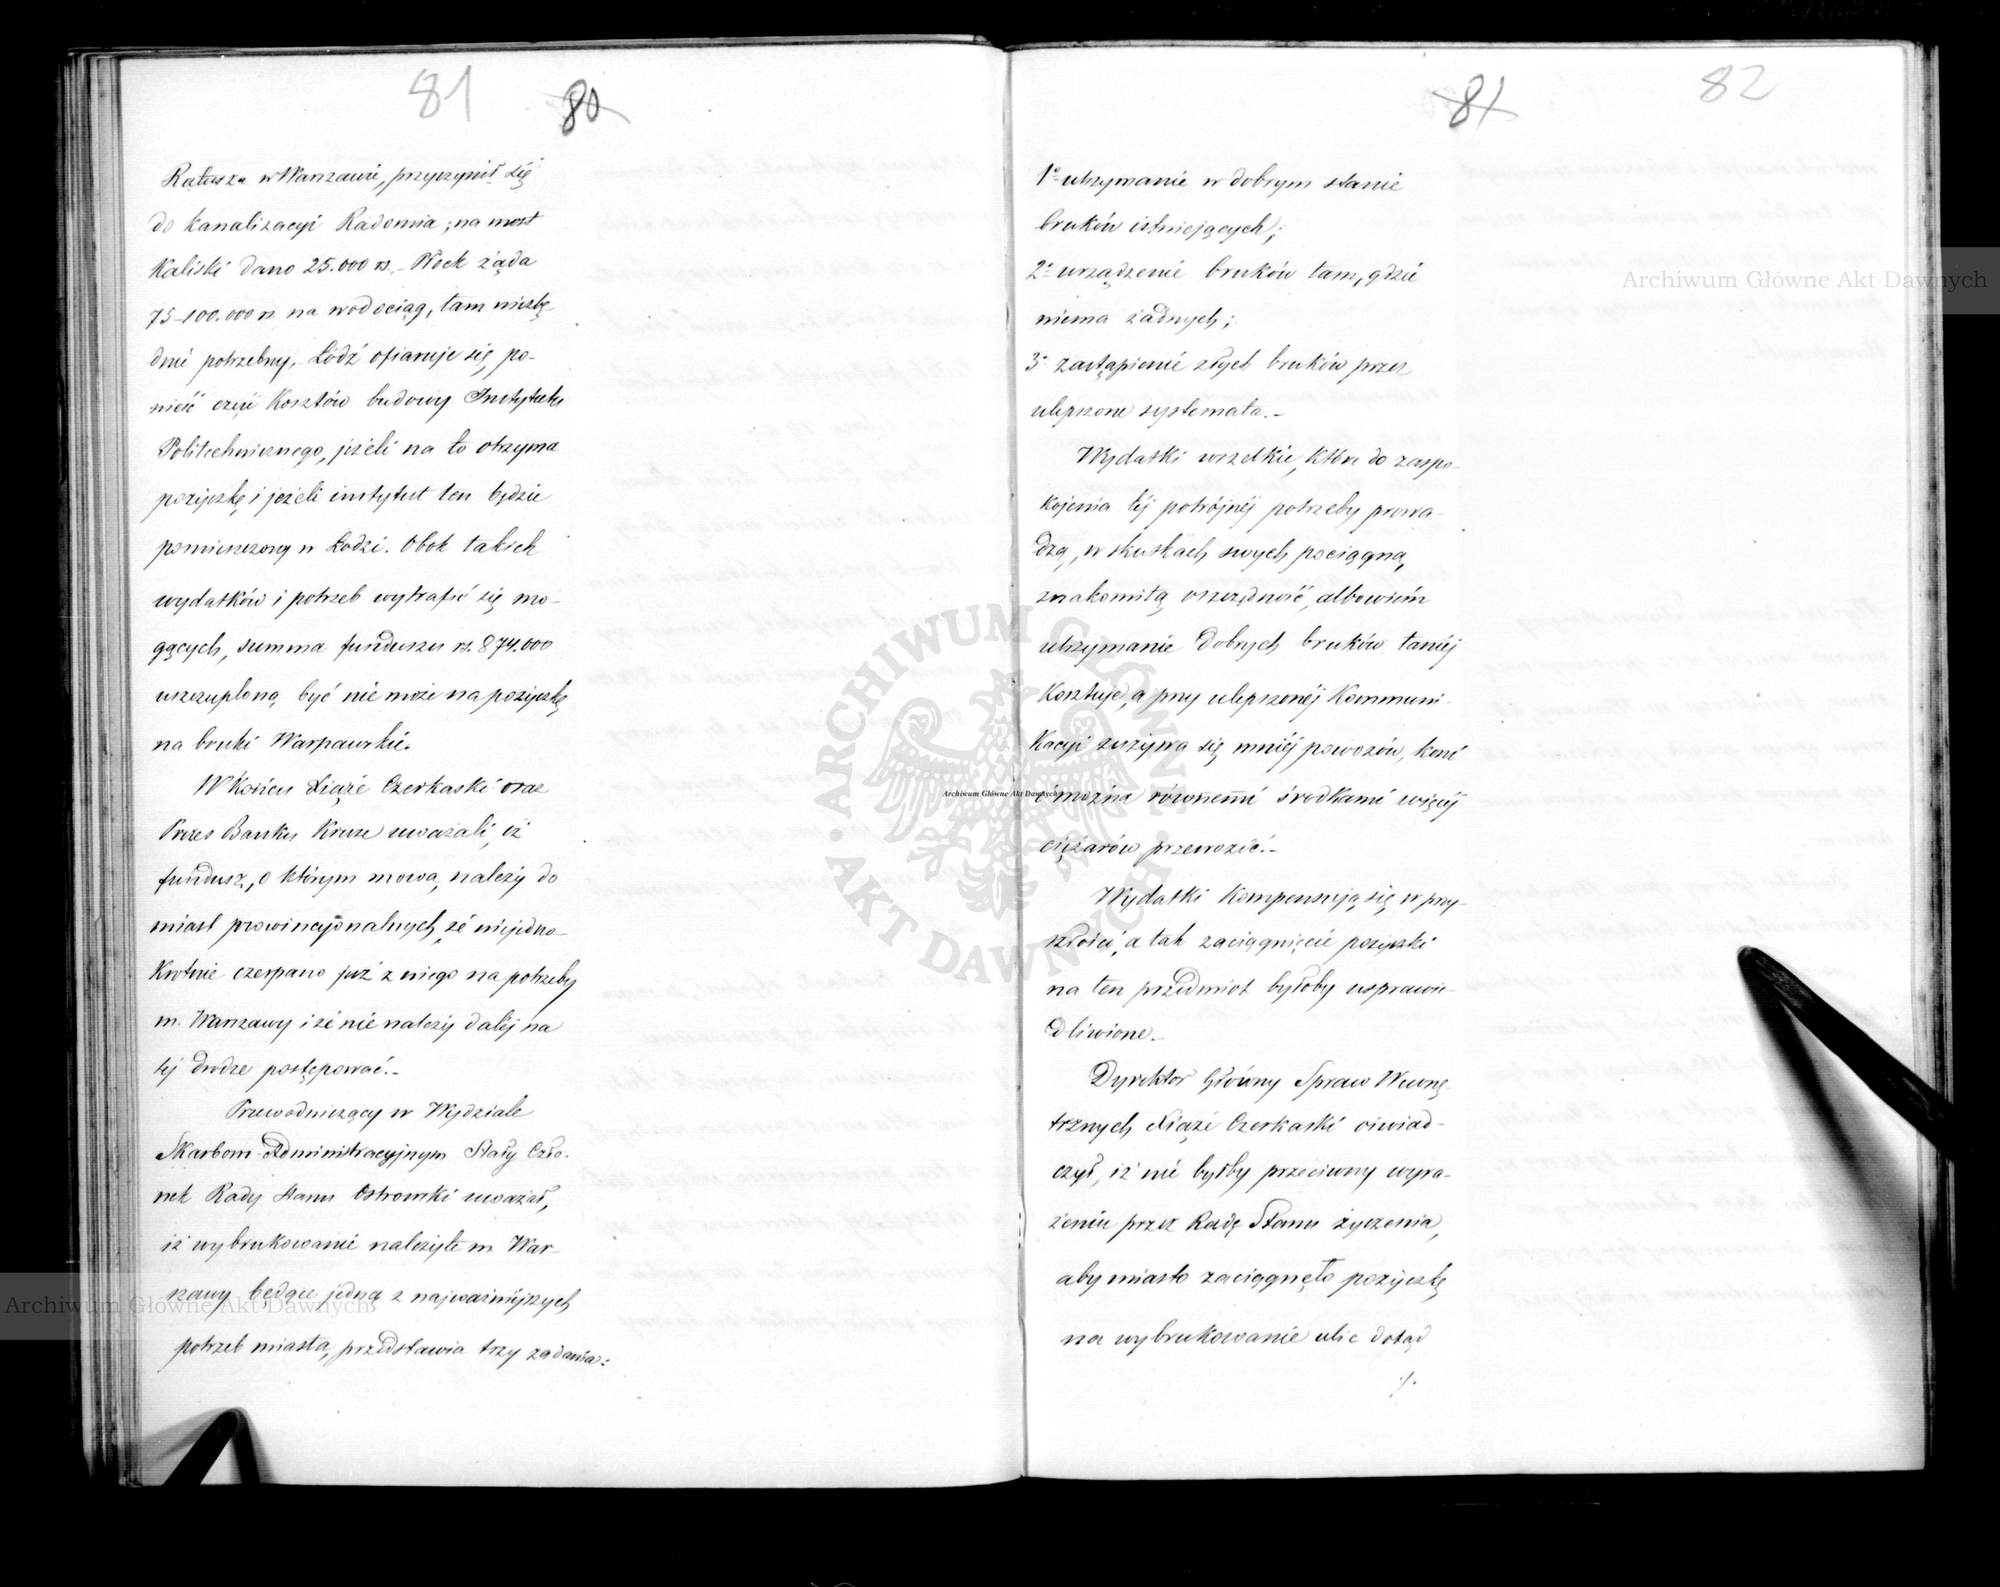 81 80
Ratusza w Warszawie, przyczynił się
do kanalizacyi Radomia; na most
Kaliski dano 25.000 rs. – Płock żąda
75–100.000 rs. na wodociąg, tam niezbę-
dnie potrzebny. Łódź ofiaruje się, po-
nieść część Kosztów budowy Instytutu
Politechnicznego, jeżeli na to otrzyma
pożyczkę i jeżeli instytut ten będzie
pomieszczony w Łodzi. Obok takich
wydatków i potrzeb wytrafić się mo-
gących, summa funduszu rs. 874.000
uszczuploną być nie może na pożyczkę
na bruki Warszawskie.
W Końcu Xiąże Czerkaski oraz
Prezes Banku Kruze uważali, iż
fundusz, o którym mowa, należy do
miast prowincyonalnych, że niejedno-
Krotnie czerpano już z niego na potrzeby
m. Warszawy i że nie należy dalej na
tej drodze postępować. –
Przewodniczący w Wydziale
Skarbowo-Administracyjnym Stały Czło-
nek Rady Stanu Ostrowski uważał,
iż wybrukowanie należyte m. War-
szawy będące jedną z najważniejszych
potrzeb miasta, przedstawia trzy zadania:
81 82
1° utrzymanie w dobrym stanie
bruków istniejących;
2° urządzenie bruków tam, gdzie
niema żadnych;
3° zastąpienie złych bruków przez
ulepszone systemata. –
Wydatki wszelkie, które do zaspo-
kojenia tej potrójnej potrzeby prowa-
dzą, w skutkach swych pociągną
znakomitą oszczędność, albowiem
utrzymanie dobrych bruków taniej
Kosztuje, a przy ulepszonej Kommuni-
Kacyi zużywa się mniej powozów, koni
i można równemi środkami więcej
ciężarów przewozić. –
Wydatki Kompensują się w przy-
szłości, a tak zaciągnięcie pożyczki
na ten przedmiot byłoby usprawie-
dliwione. –
Dyrektor Główny Spraw Wewnę-
trznych Xiąże Czerkaski oświad-
czył, iż nie byłby przeciwny wyra-
żeniu przez Radę Stanu życzenia,
aby miasto zaciągnęło pożyczkę
na wybrukowanie ulic dotąd
./.
Archiwum Główne Akt Dawnych
Archiwum Główne Akt Dawnych
Archiwum Główne Akt Dawnych
ARCHIWUM GŁÓWNE · AKT DAWNYCH ·